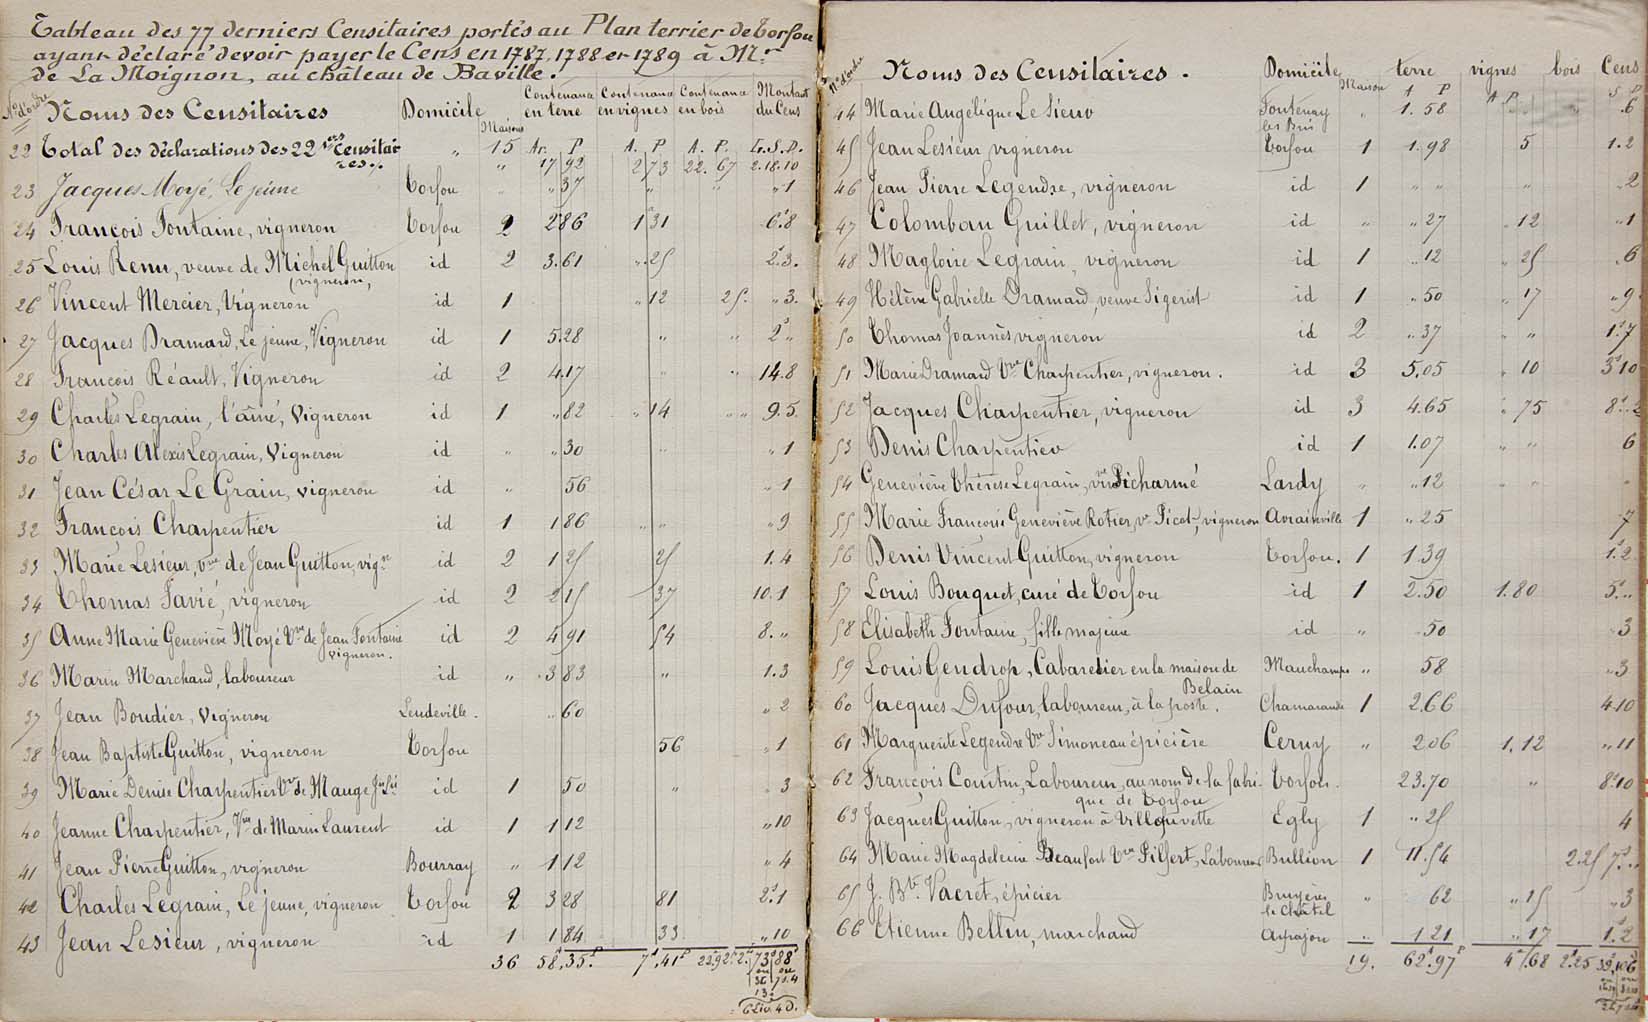 Tableau des 77 derniers Censitaires portés au Plan terrier de Torfou
ayant déclaré devoir payer le Cens en 1787, 1788 et 1789 à Mr
de La Moignon, au château de Baville.
Nos d'ordre Noms des Censitaires Domicile Maisons Contenance en terre Contenance en vignes Contenance en bois Montant du Cens
22 Total des déclarations des 22 1ers Censitaires „ 15 Ar. P A. P. A. P. L.S.D.
„ 17 92 2 73 22. 67 2.18.10
23 Jacques Moyé, Le jeune Torfou „ „ 37 „ „ „ 1
24 François Fontaine, vigneron Torfou 2 2 86 1 31 6s8
25 Louis Renu, veuve de Michel Guitton (vigneron, id 2 3.61 „ 25 2s3.
26 Vincent Mercier, Vigneron id 1 „ 12 25. „ 3.
27 Jacques Dramard, Le jeune, Vigneron id 1 5.28 „ „ 2s „
28 François Réault, Vigneron id 2 4.17 „ „ 14.8
29 Charles Legrain, l'aîné, Vigneron id 1 „ 82 „ 14 „ „ 9.5.
30 Charles Alexis Legrain, Vigneron id „ „ 30 „ „ 1
31 Jean César Le Grain, vigneron id „ 56 „ 1
32 François Charpentier id 1 1 86 „ „ „ 9
33 Marie Lesieur, vve de Jean Guitton, vign id 2 1 25 25 1.4
34 Thomas Favié, vigneron id 2 2 15 37 10.1
35 Anne Marie Geneviève Moyé Vve de Jean Fontaine vigneron. id 2 4 91 54 8. „
36 Marin Marchand, laboureur id „ 3 83 „ 1.3
37 Jean Boudier, Vigneron Leudeville. „ 60 „ 2
38 Jean Baptiste Guitton, vigneron Torfou 56 „ 1
39 Marie Denise Charpentier Vve de Mauge id 1 50 „ 3
40 Jeanne Charpentier, Vve de Marin Laurent id 1 1 12 „ 10
41 Jean Pierre Guitton, vigneron Bouray „ 1 12 „ 4
42 Charles Legrain, Le jeune, vigneron Torfou 2 3 28 81 2s1
43 Jean Lesieur, vigneron id 1 1 84 33 „ 10
36 58A,35P 7A,41P 22A92P 2L 73s 88d
ou ou
36 7s.4
13s
6L10.4D.
Nos d'ordre Noms des Censitaires. Domicile Maison terre vignes bois Cens
A P A P. S D
44 Marie Angélique Le Sieur Fontenay les Bris „ 1.58 „ „ 6
45 Jean Lesieur vigneron Torfou 1 1.98 5 1.2
46 Jean Pierre Legendre, vigneron id 1 „ „ „ „ 2
47 Colomban Guillet, vigneron id „ „ 27 „ 12 „ 1
48 Magloire Legrain, vigneron id 1 „ 12 „ 25 „ 6
49 Hélène Gabrielle Dramard, veuve Sigerist id 1 „ 50 „ 17 „ 9
50 Thomas Joannès vigneron id 2 „ 37 „ „ 1s7
51 Marie Dramard Vve Charpentier, vigneron. id 3 5.05 „ 10 3s10
52 Jacques Charpentier, vigneron id 3 4.65 „ 75 8s.2
53 Denis Charpentier id 1 1.07 „ „ 6
54 Geneviève Thérèse Legrain, vve Picharmé Lardy „ „ 12 „ „ „
55 Marie Françoise Geneviève Rotier, ve Picot, vigneron Avrainville 1 „ 25 7
56 Denis Vincent Guitton, vigneron Torfou. 1 1.39 1s2
57 Louis Bouquet, curé de Torfou id 1 2.50 1.80 5s „
58 Elisabeth Fontaine, fille majeure id „ 50 „ 3
59 Louis Gendron, Cabaretier en la maison de Belain Mauchamps „ 58 „ 3
60 Jacques Dufour, laboureur, à la poste. Chamarande 1 2.66 4.10
61 Marguerite Legendre Vve Simoneau épicière Cerny „ 2.06 1.12 „ 11
62 François Courtin, Laboureur, au nom de la fabrique de Torfou Torfou. 23.70 „ 8s10
63 Jacques Guitton, vigneron à Villelouvette Egly 1 „ 25 4
64 Marie Magdeleine Beaufort Vve Pilfert, Laboureur Bullion 1 11.54 2.25 7s „
65 J. Bte Vacret, épicier Bruyères le Châtel „ 62 „ 15 „ 3
66 Etienne Bellin, marchand Arpajon „ 1 21 „ 17 1s2
19. 62A.97P 4A.68 2A.25 39s.106d